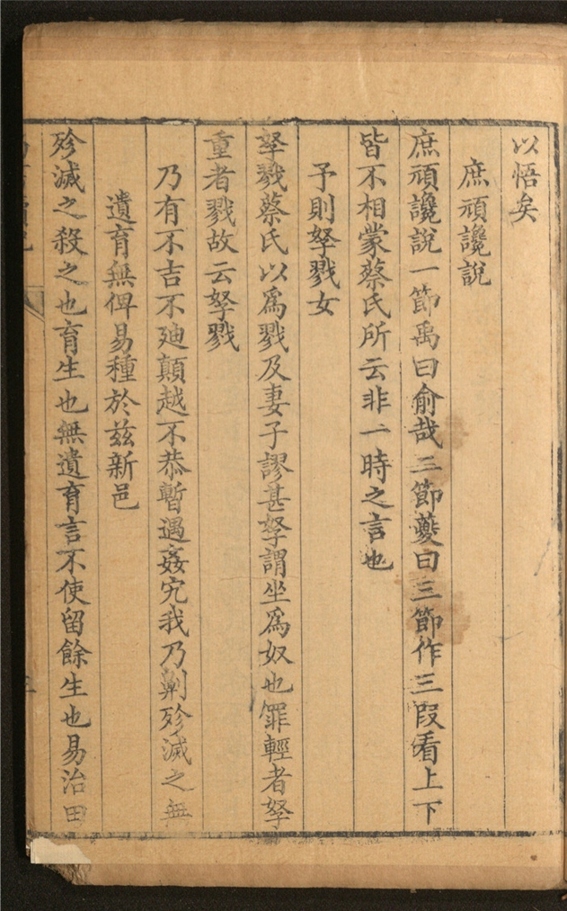 以悟矣
庶頑讒說
庶頑讒說一節禹曰俞哉三節夔曰三節作三叚看上下
皆不相蒙蔡氏所云非一時之言也
予則孥戮女
孥戮蔡氏以爲戮及妻子謬甚孥謂坐爲奴也罪輕者孥
重者戮故云孥戮
乃有不吉不廸顛越不恭暫遇姦宄我乃劓殄滅之無
遺育無俾易種於兹新邑
殄滅之殺之也育生也無遺育言不使留餘生也易治田